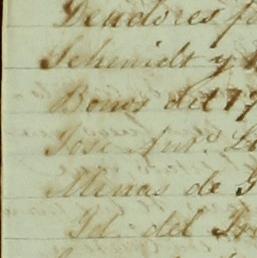 Deudores
Schmidt y
Bonos del 7
Jose Ant.º
Minas de
Id. del